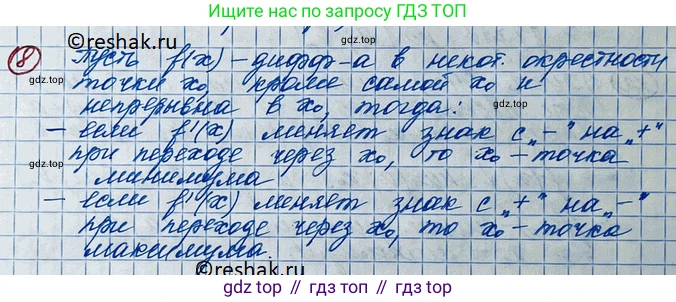 Ищите решение по запросу ГДЗ ТОП
©reshak.ru
gdz.top
gdz.top
gdz.top
8 Пусть f(x) – дифф-а в некот. окрестности
точки x₀, кроме самой x₀ и
непрерывна в x₀, тогда:
gdz.top
gdz.top
gdz.top
– если f'(x) меняет знак с „–" на „+"
при переходе через x₀, то x₀ – точка
минимума
gdz.top
gdz.top
gdz.top
– если f'(x) меняет знак с „+" на „–"
при переходе через x₀, то x₀ – точка
максимума.
gdz.top
gdz.top
gdz.top
©reshak.ru
gdz.top // гдз топ // гдз.топ